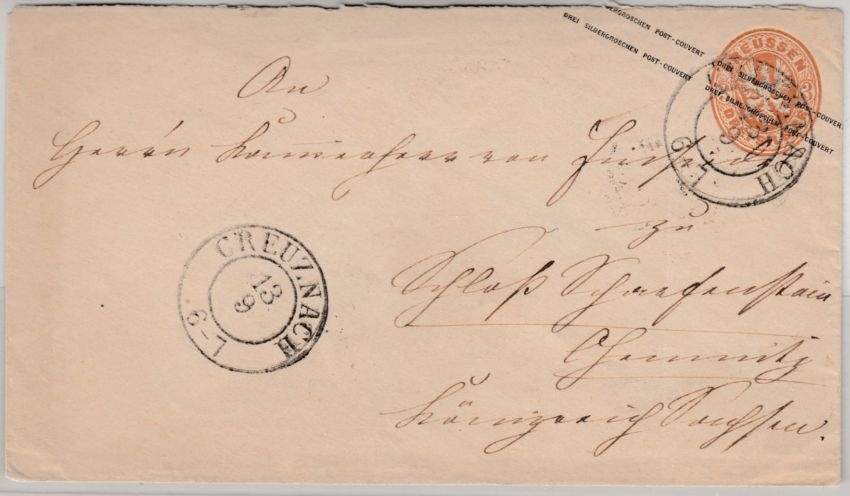 DREI SILBERGROSCHEN POST-COUVERT
DREI SILBERGROSCHEN POST-COUVERT
DREI SILBERGROSCHEN POST-COUVERT
PREUSSEN
CREUZNACH
13
9
6-7
An
Herrn Kammerherr von
zu
Schloß Scharfenstein
Chemnitz
Königreich Sachsen.
CREUZNACH
13
9
6-7